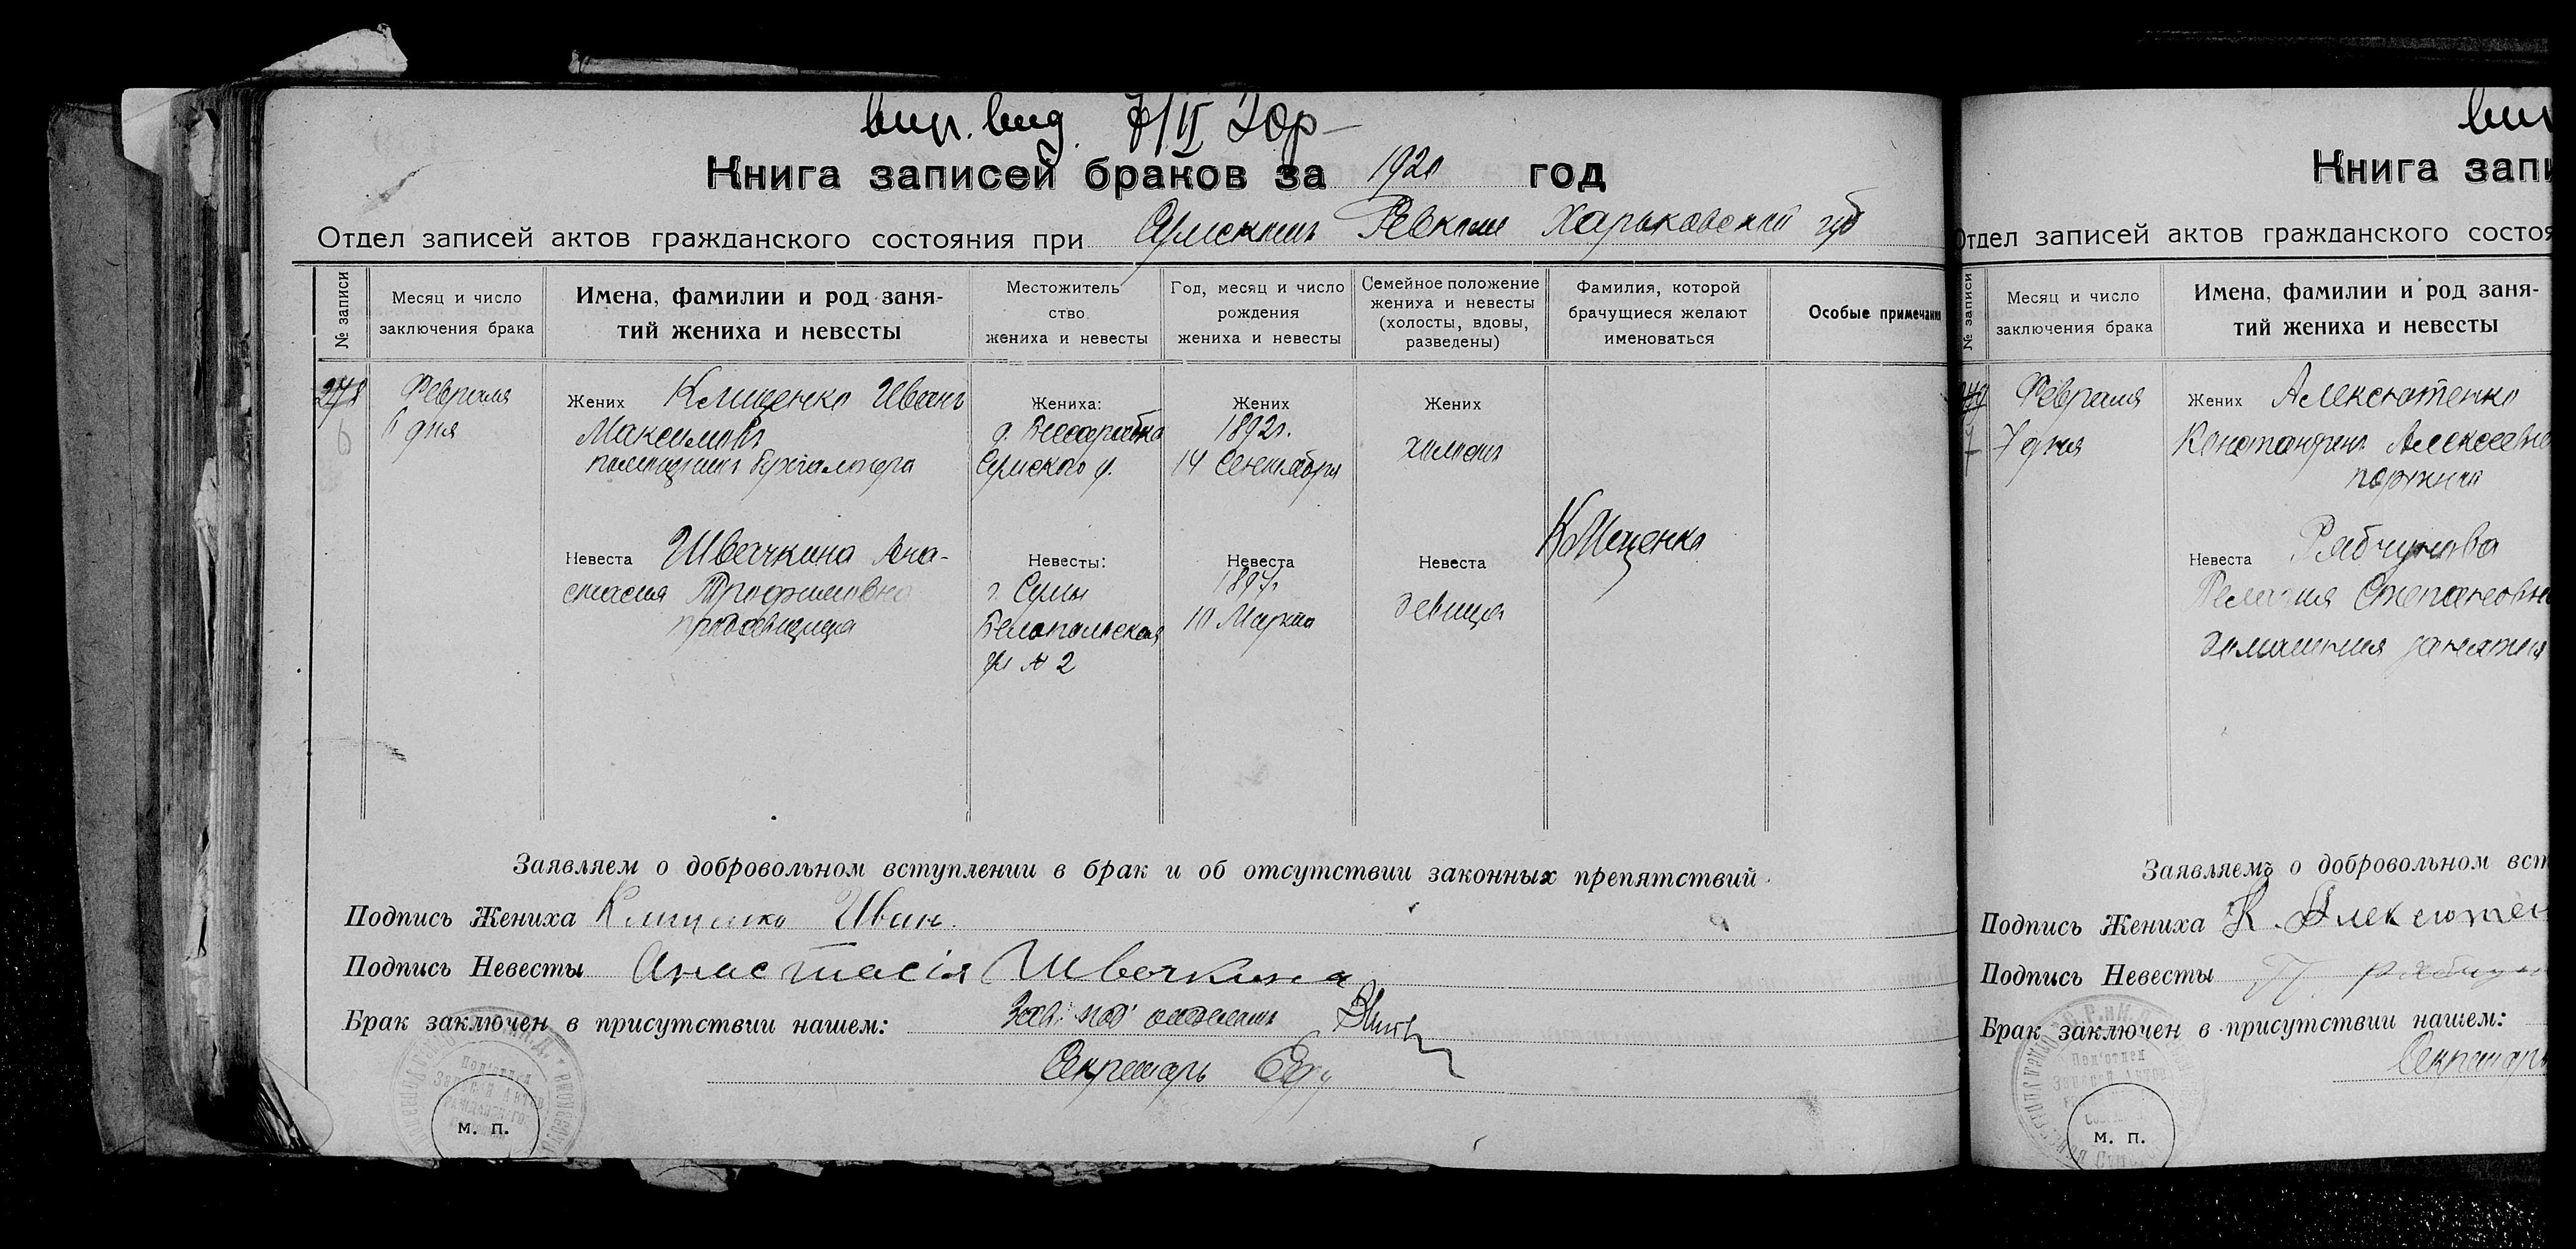 вид. 7/II
Книга записей браков за 1920 год
Отдел записей актов гражданского состояния при Сумском Ревкоме Харьковской губ
№ записи
Месяц и число
заключения брака
Имена, фамилии и род заня-
тий жениха и невесты
Местожитель
ство
жениха и невесты
Год, месяц и число
рождения
жениха и невесты
Семейное положение
жениха и невесты
(холосты, вдовы,
разведены)
Фамилия, которой
брачущиеся желают
именоваться
Особые примечани
278
6
Февраля
6 дня
Жених Клищенко Иванъ
Максимовъ
помощникъ бухгалтера
Жениха:
д. Бессарабка
Сумского у.
Жених
1892г.
14 Сентября
Жених
холостъ
Невеста Швачкина Ана-
стасия Трофимовна
продавщица
Невесты:
г. Сумы
Белопольская
ул № 2
Невеста
1897г
10 Марта
Невеста
девица
Клищенко
Заявляем о добровольном вступлении в брак и об отсутствии законных препятствий
Подпись Жениха Клищенко Иван.
Подпись Невесты Анастасія Швачкина
Брак заключен в присутствии нашем: Зав. под отделомъ
Секретарь
Под'отдел
Записей Актов
Гражданского
м. п.
Книга запи
Отдел записей актов гражданского состоя
№ записи
Месяц и число
заключения брака
Имена, фамилии и род заня-
тий жениха и невесты
7
Февраля
7 дня
Жених Алексютенко
Константинъ Алексеевич
портной
Невеста Рябчунова
Пелагия Степановна
домашния занятия
Заявляемъ о добровольном вст
Подпись Жениха К. Алексютен
Подпись Невесты П. Рябчун
Брак заключен в присутствии нашем:
Секретарь
Под'отдел
Записей Актов
м. п.